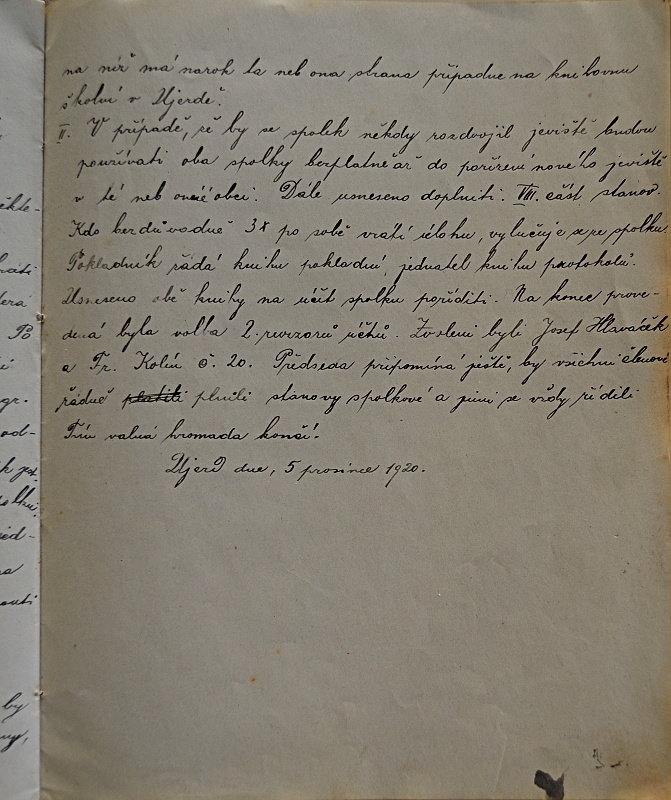 na niž má narok ta neb ona strana připadne na knihovnu
školní v Ujezdě.
II. V připadě, že by se spolek někdy rozdvojil jeviště budou
používati oba spolky bezplatně až do pořízení nového jeviště
v té neb oné obci. Dále usneseno doplniti. VIII. část stanov.
Kdo bezdůvodně 3x po sobě vrátí úlohu, vylučuje se ze spolku.
Pokladník žádá knihu pokladní, jednatel knihu protokolů.
Usneseno obě knihy na účit spolku pořiditi. Na konec prove-
dená byla volba 2. revizorů účtů. Zvoleni byli Josef Hlaváček
a Fr. Kolín č. 20. Předseda připomíná ještě, by všichni členové
řádně platili plnili stanovy spolkové a jimi se vždy řídili
Tím valná hromada končí.
Ujezd dne, 5 prosince 1920.